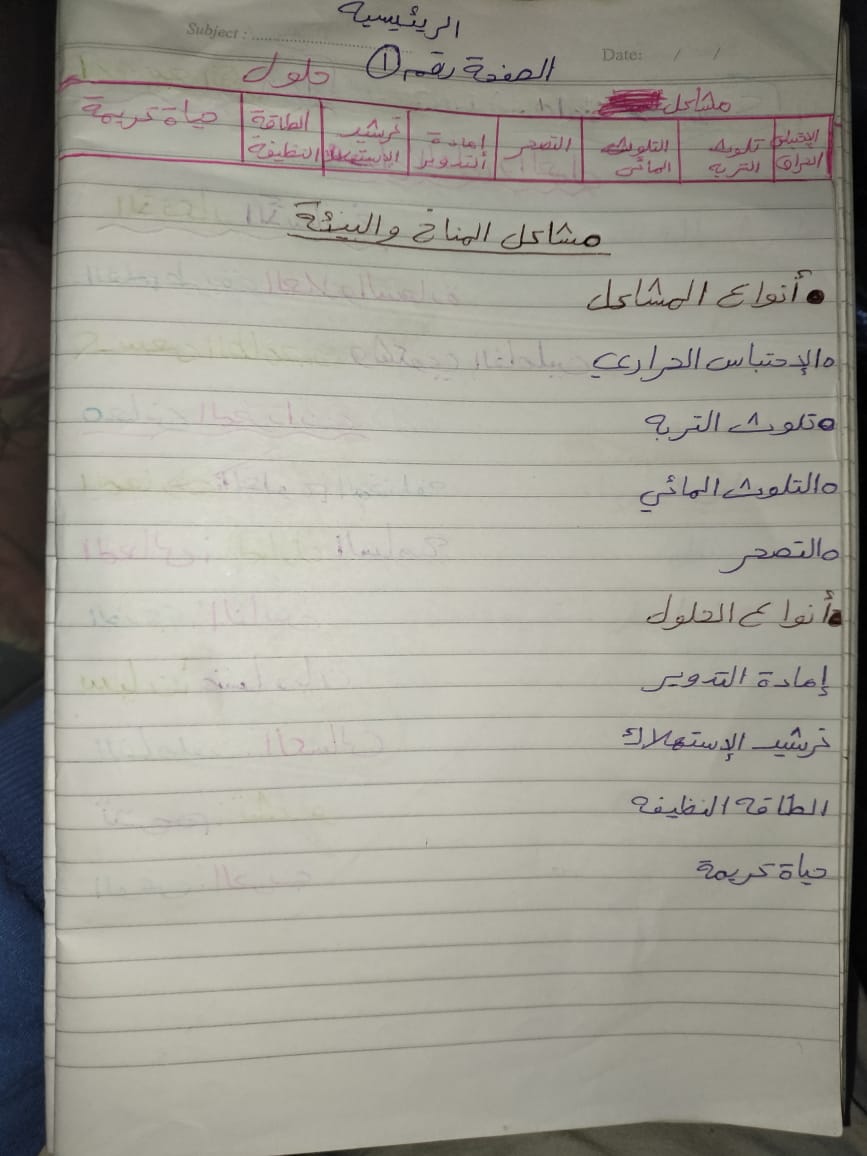 الريئيسية
Subject :
Date: / /
الصفحة رقم ①
حلول
مشاكل
الإحتباس الحراري
تلوث التربه
التلوث المائي
التصحر
إعادة التدوير
ترشيد الإستهلاك
الطاقة النظيفة
حياة كريمة
مشاكل المناخ والبيئة
• أنواع المشاكل
الإحتباس الحراري
تلوث التربه
التلوث المائي
التصحر
• أنواع الحلول
إعادة التدوير
ترشيد الإستهلاك
الطاقه النظيفه
حياة كريمة